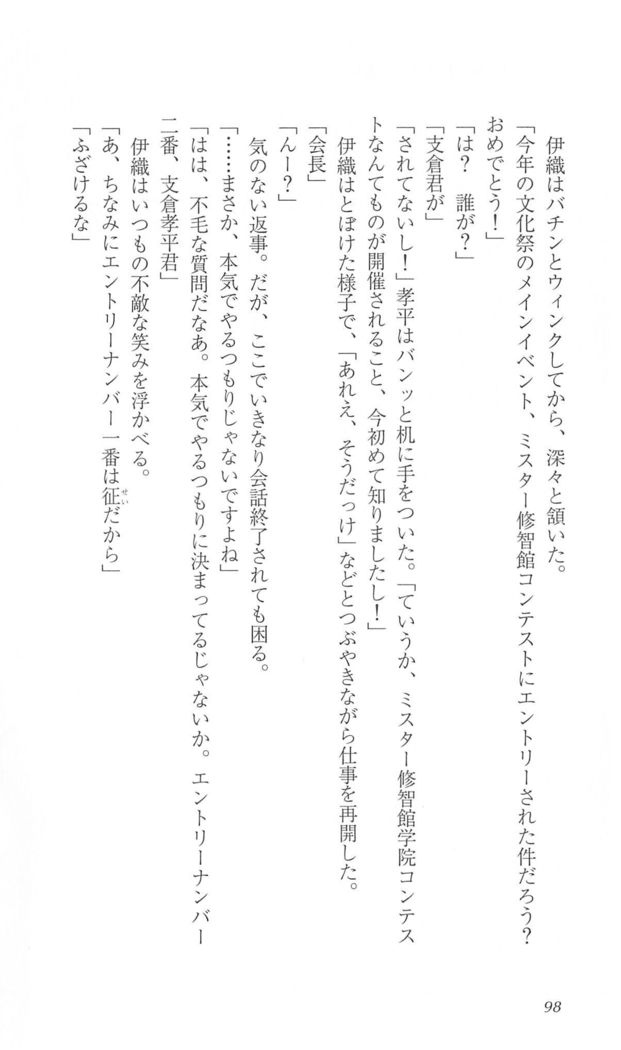 伊織はバチンとウィンクしてから、深々と頷いた。
「今年の文化祭のメインイベント、ミスター修智館コンテストにエントリーされた件だろう？
おめでとう！」
「は？　誰が？」
「支倉君が」
「されてないし！」孝平はバンッと机に手をついた。「ていうか、ミスター修智館学院コンテス
トなんてものが開催されること、今初めて知りましたし！」
伊織はとぼけた様子で、「あれえ、そうだっけ」などとつぶやきながら仕事を再開した。
「会長」
「んー？」
気のない返事。だが、ここでいきなり会話終了されても困る。
「……まさか、本気でやるつもりじゃないですよね」
「はは、不毛な質問だなあ。本気でやるつもりに決まってるじゃないか。エントリーナンバー
二番、支倉孝平君」
伊織はいつもの不敵な笑みを浮かべる。
「あ、ちなみにエントリーナンバー一番は征だから」
せい
「ふざけるな」
98